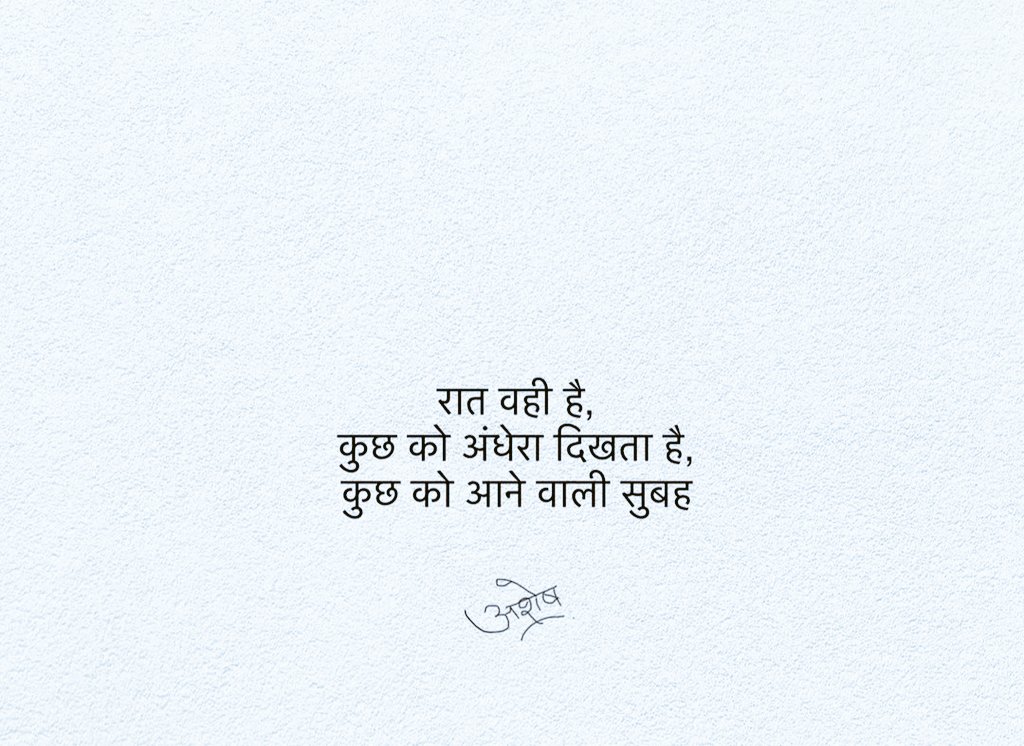 रात वही है,
कुछ को अंधेरा दिखता है,
कुछ को आने वाली सुबह
अशेष